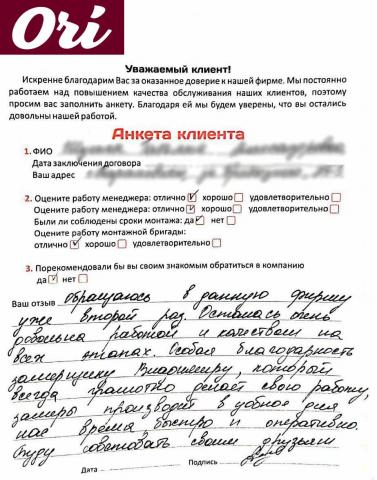 Ori
Уважаемый клиент!
Искренне благодарим Вас за оказанное доверие к нашей фирме. Мы постоянно
работаем над повышением качества обслуживания наших клиентов, поэтому
просим вас заполнить анкету. Благодаря ей мы будем уверены, что вы остались
довольны нашей работой.
Анкета клиента
1. ФИО
Дата заключения договора
Ваш адрес
2. Оцените работу менеджера: отлично хорошо удовлетворительно
Оцените работу менеджера: отлично хорошо удовлетворительно
Были ли соблюдены сроки монтажа: да нет
Оцените работу монтажной бригады:
отлично хорошо удовлетворительно
3. Порекомендовали бы вы своим знакомым обратиться в компанию
да нет
Ваш отзыв обращаюсь в данную фирму
уже второй раз. Осталась очень
довольна работой и качеством на
всех этапах. Особая благодарность
замерщику Владимиру, который
всегда грамотно делает свою работу,
замеры производит в удобное для
нас время быстро и оперативно.
Буду советовать своим друзьям
Дата Подпись